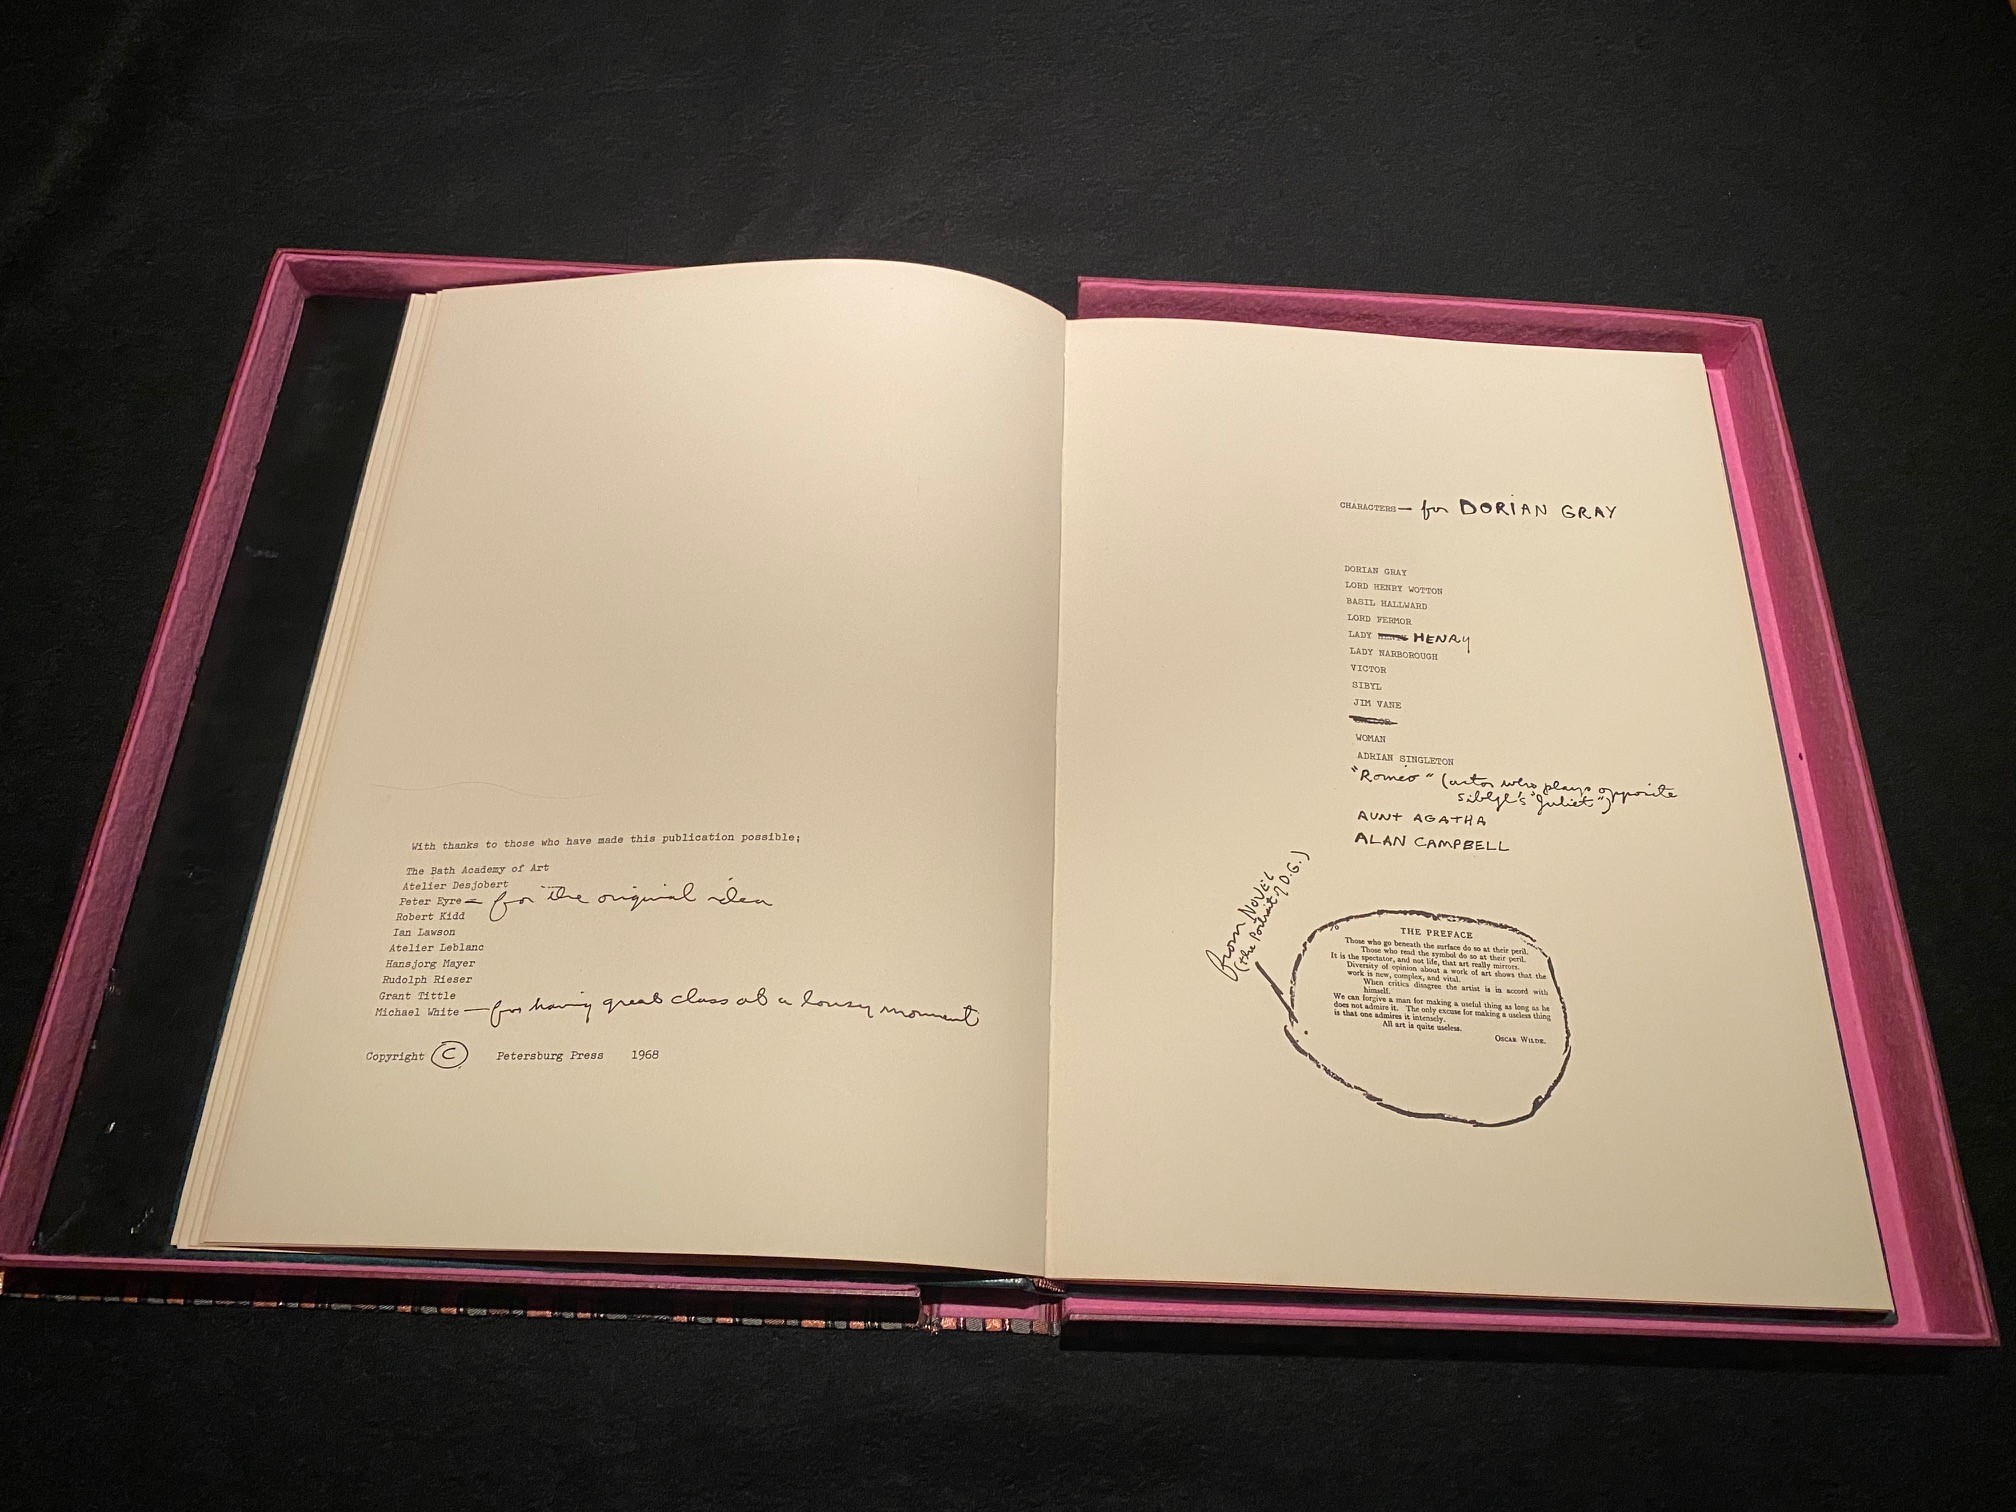 With thanks to those who have made this publication possible;
The Bath Academy of Art
Atelier Desjobert
Peter Eyre — for the original idea
Robert Kidd
Ian Lawson
Atelier Leblanc
Hansjorg Mayer
Rudolph Rieser
Grant Tittle
Michael White — for having great class at a lousy moment
Copyright © Petersburg Press 1968
CHARACTERS — for DORIAN GRAY
DORIAN GRAY
LORD HENRY WOTTON
BASIL HALLWARD
LORD FERMOR
LADY HENRY
LADY NARBOROUGH
VICTOR
SIBYL
JIM VANE
WOMAN
ADRIAN SINGLETON
"Romeo" (actor who plays opposite
Sibyl's "Juliet")
AUNT AGATHA
ALAN CAMPBELL
from NOVEL
(the Portrait of D.G.)
THE PREFACE
Those who go beneath the surface do so at their peril.
Those who read the symbol do so at their peril.
It is the spectator, and not life, that art really mirrors.
Diversity of opinion about a work of art shows that the
work is new, complex, and vital.
When critics disagree the artist is in accord with
himself.
We can forgive a man for making a useful thing as long as he
does not admire it. The only excuse for making a useless thing
is that one admires it intensely.
All art is quite useless.
OSCAR WILDE.